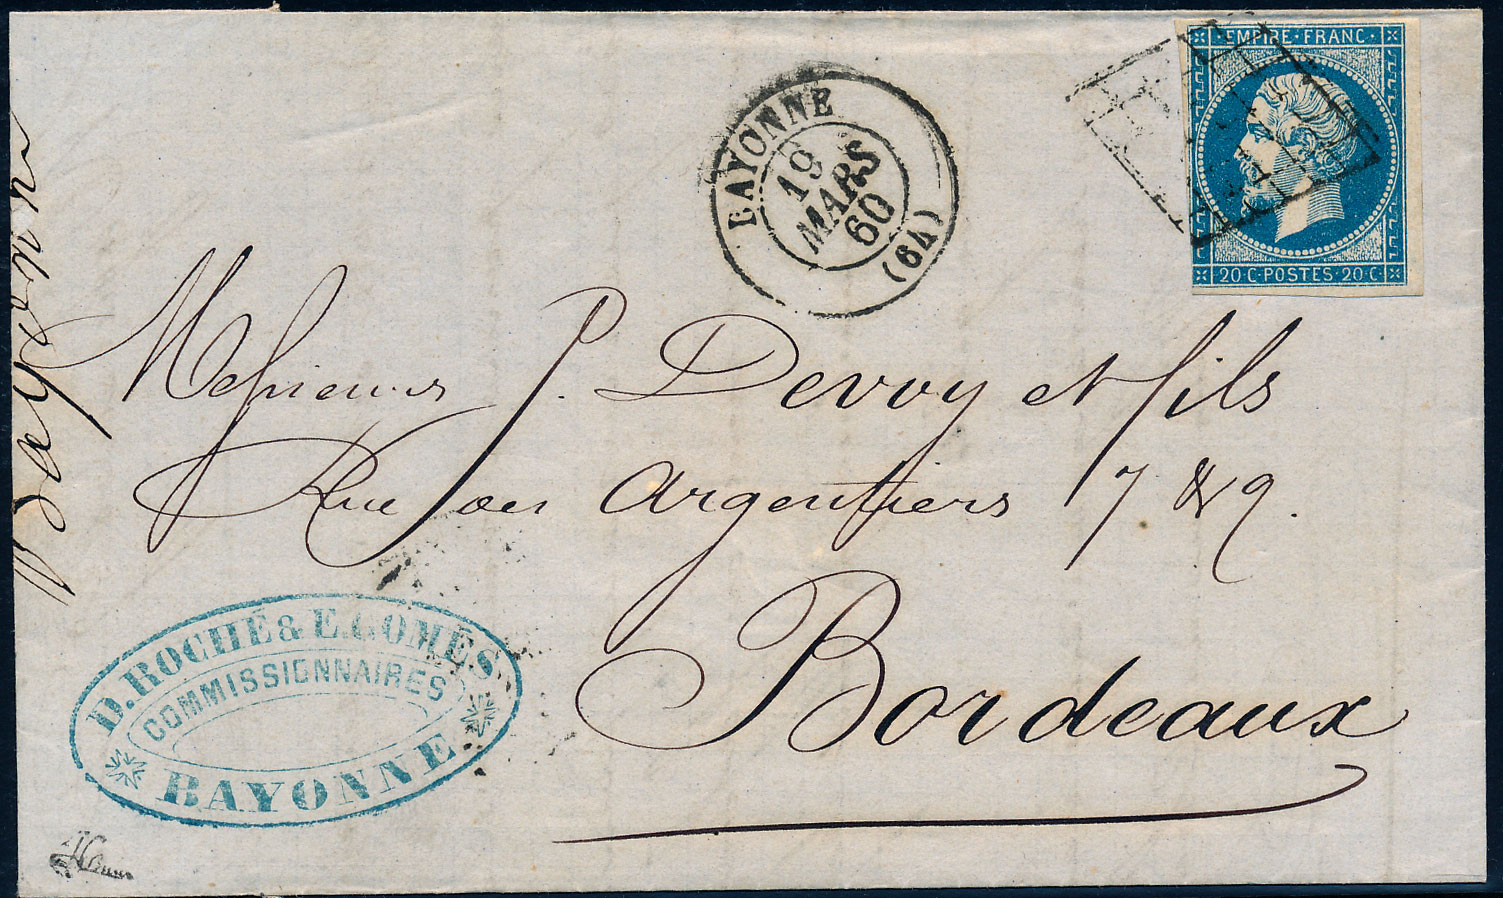 EMPIRE · FRANC ·
20 C · POSTES · 20 C
BAYONNE
19
MARS
60
(64)
Bayonne
Messieurs J. Devoy et fils
Rue des Argentiers 7 & 9.
Bordeaux
D. ROCHÉ & E. GOMÉS
COMMISSIONNAIRES
BAYONNE